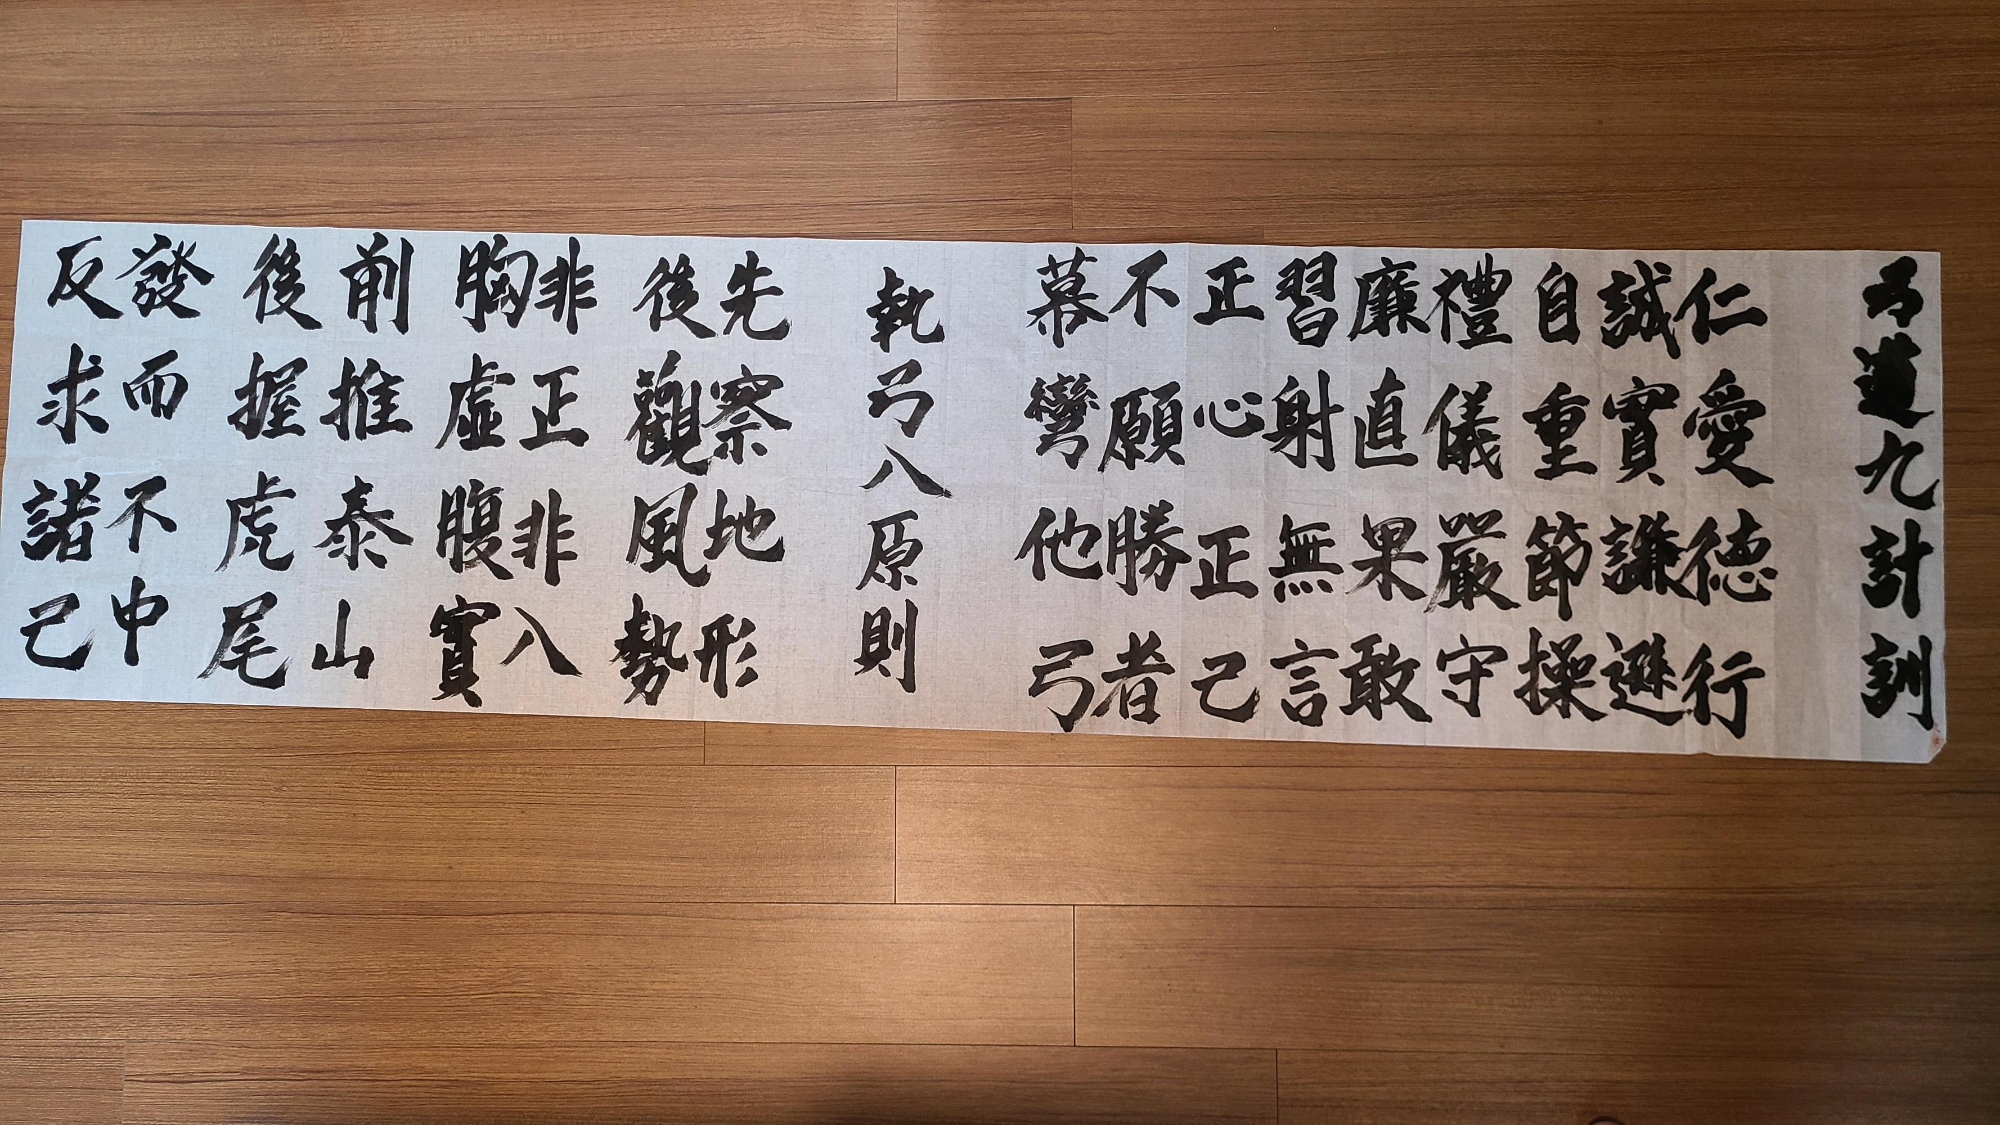 弓道九計訓
仁愛德行
誠實謙遜
自重節操
禮儀嚴守
廉直果敢
習射無言
正心正己
不願勝者
幕彎他弓
執弓八原則
先察地形
後觀風勢
非正非八
胸虛腹實
前推泰山
後握虎尾
發而不中
反求諸己